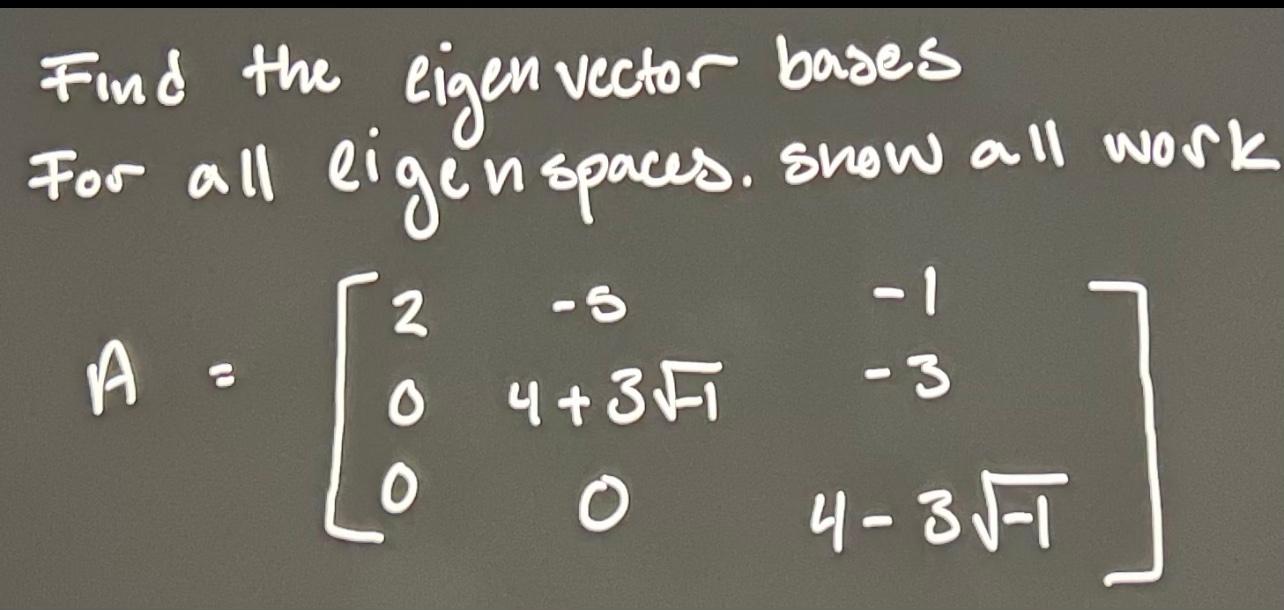 Find the eigenvector bases
For all eigenspaces. show all work
2 -5 -1
A = 0 4+3√-1 -3
0 0 4-3√-1